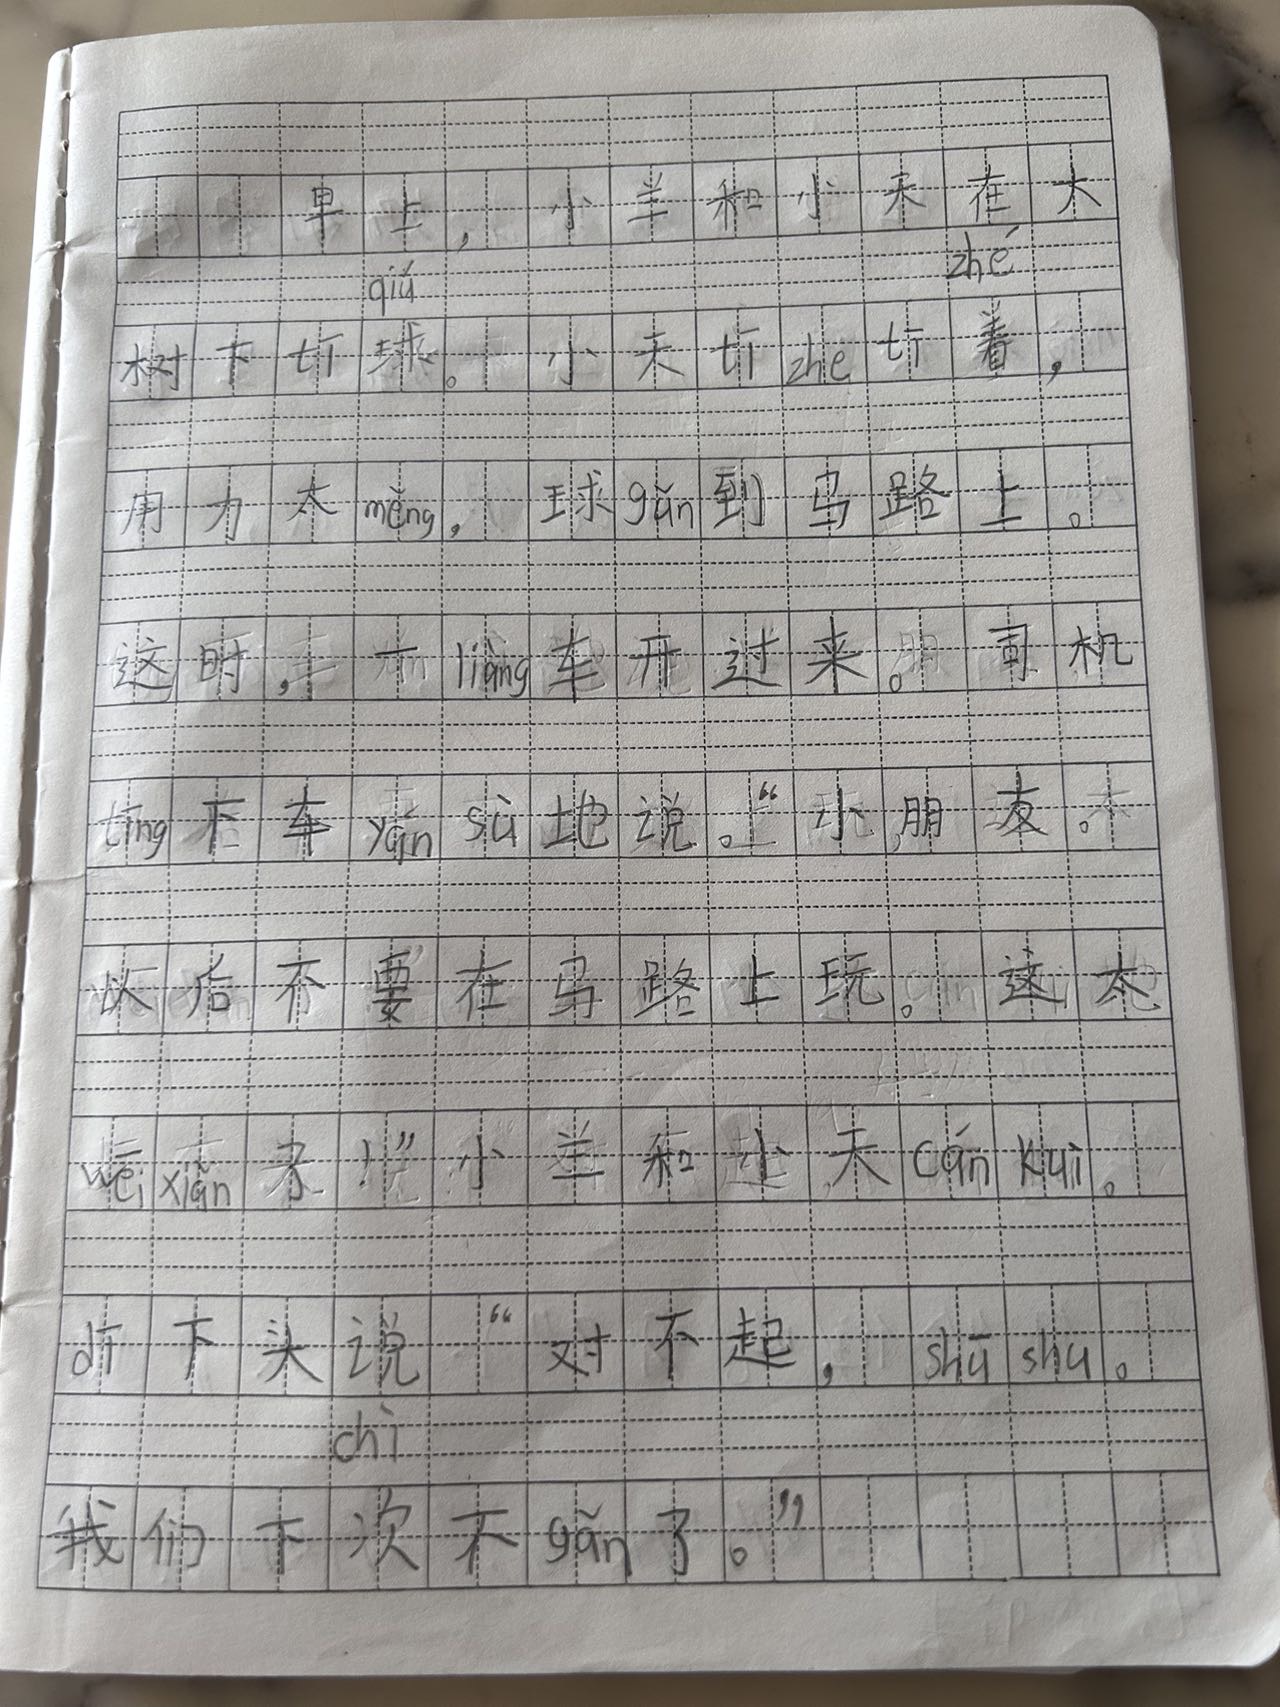 早上，小羊和小天在大
qiú zhé
树下tī球。小天tī zhe tī着，
用力太měng，球gǔn到马路上。
这时，一liàng车开过来。司机
tíng下车yán sù地说。“小朋友。
以后不要在马路上玩。这太
wēi xiǎn了！”小羊和小天cán kuì。
dī下头说“对不起，shū shu。
chì
我们下次不gǎn了。”